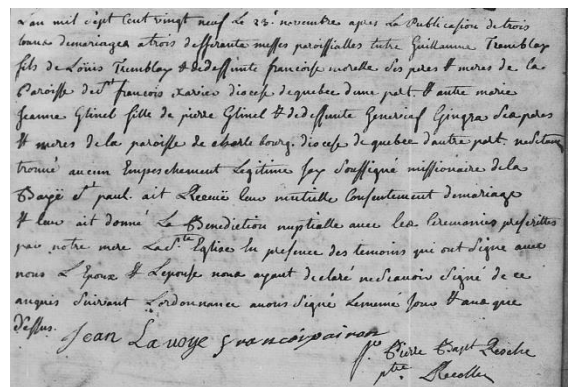 L'an mil cept cent vingt neuf le 23e novembre apres la publication de trois
bans de mariagea a trois differante messes paroissialles entre Guillaume Tremblay
fils de Loüis Tremblay & de deffunte francoise morelle ses peres & meres de la
paroisse de St francois xavier diocese de quebec d'une part & autre marie
Jeanne Glinel fille de pierre Glinel & de deffunte Genevief Gingra sea peres
& meres de la paroisse de charlebourg diocese de quebec d'autre part. ne s'etant
trouvé aucun Empeschement Legitime Jay soussigné missionaire de la
Bayë St paul. ait Receüe leur mutuelle consentement de mariage
& leur ait donné La Benediction nuptialle avec lea Ceremonies prescrittes
par notre mere La Ste Eglise En presence des temoins qui ont signe avec
nous L'Epoux & L'epouse nous ayant declaré ne scavoir signé de ce
enquis suivant L'ordonnance avons signé le meme jour & ans que
dessus.
Jean Lavoye francois pairan
fr. Pierre Bapt Resche
ptre Recollet